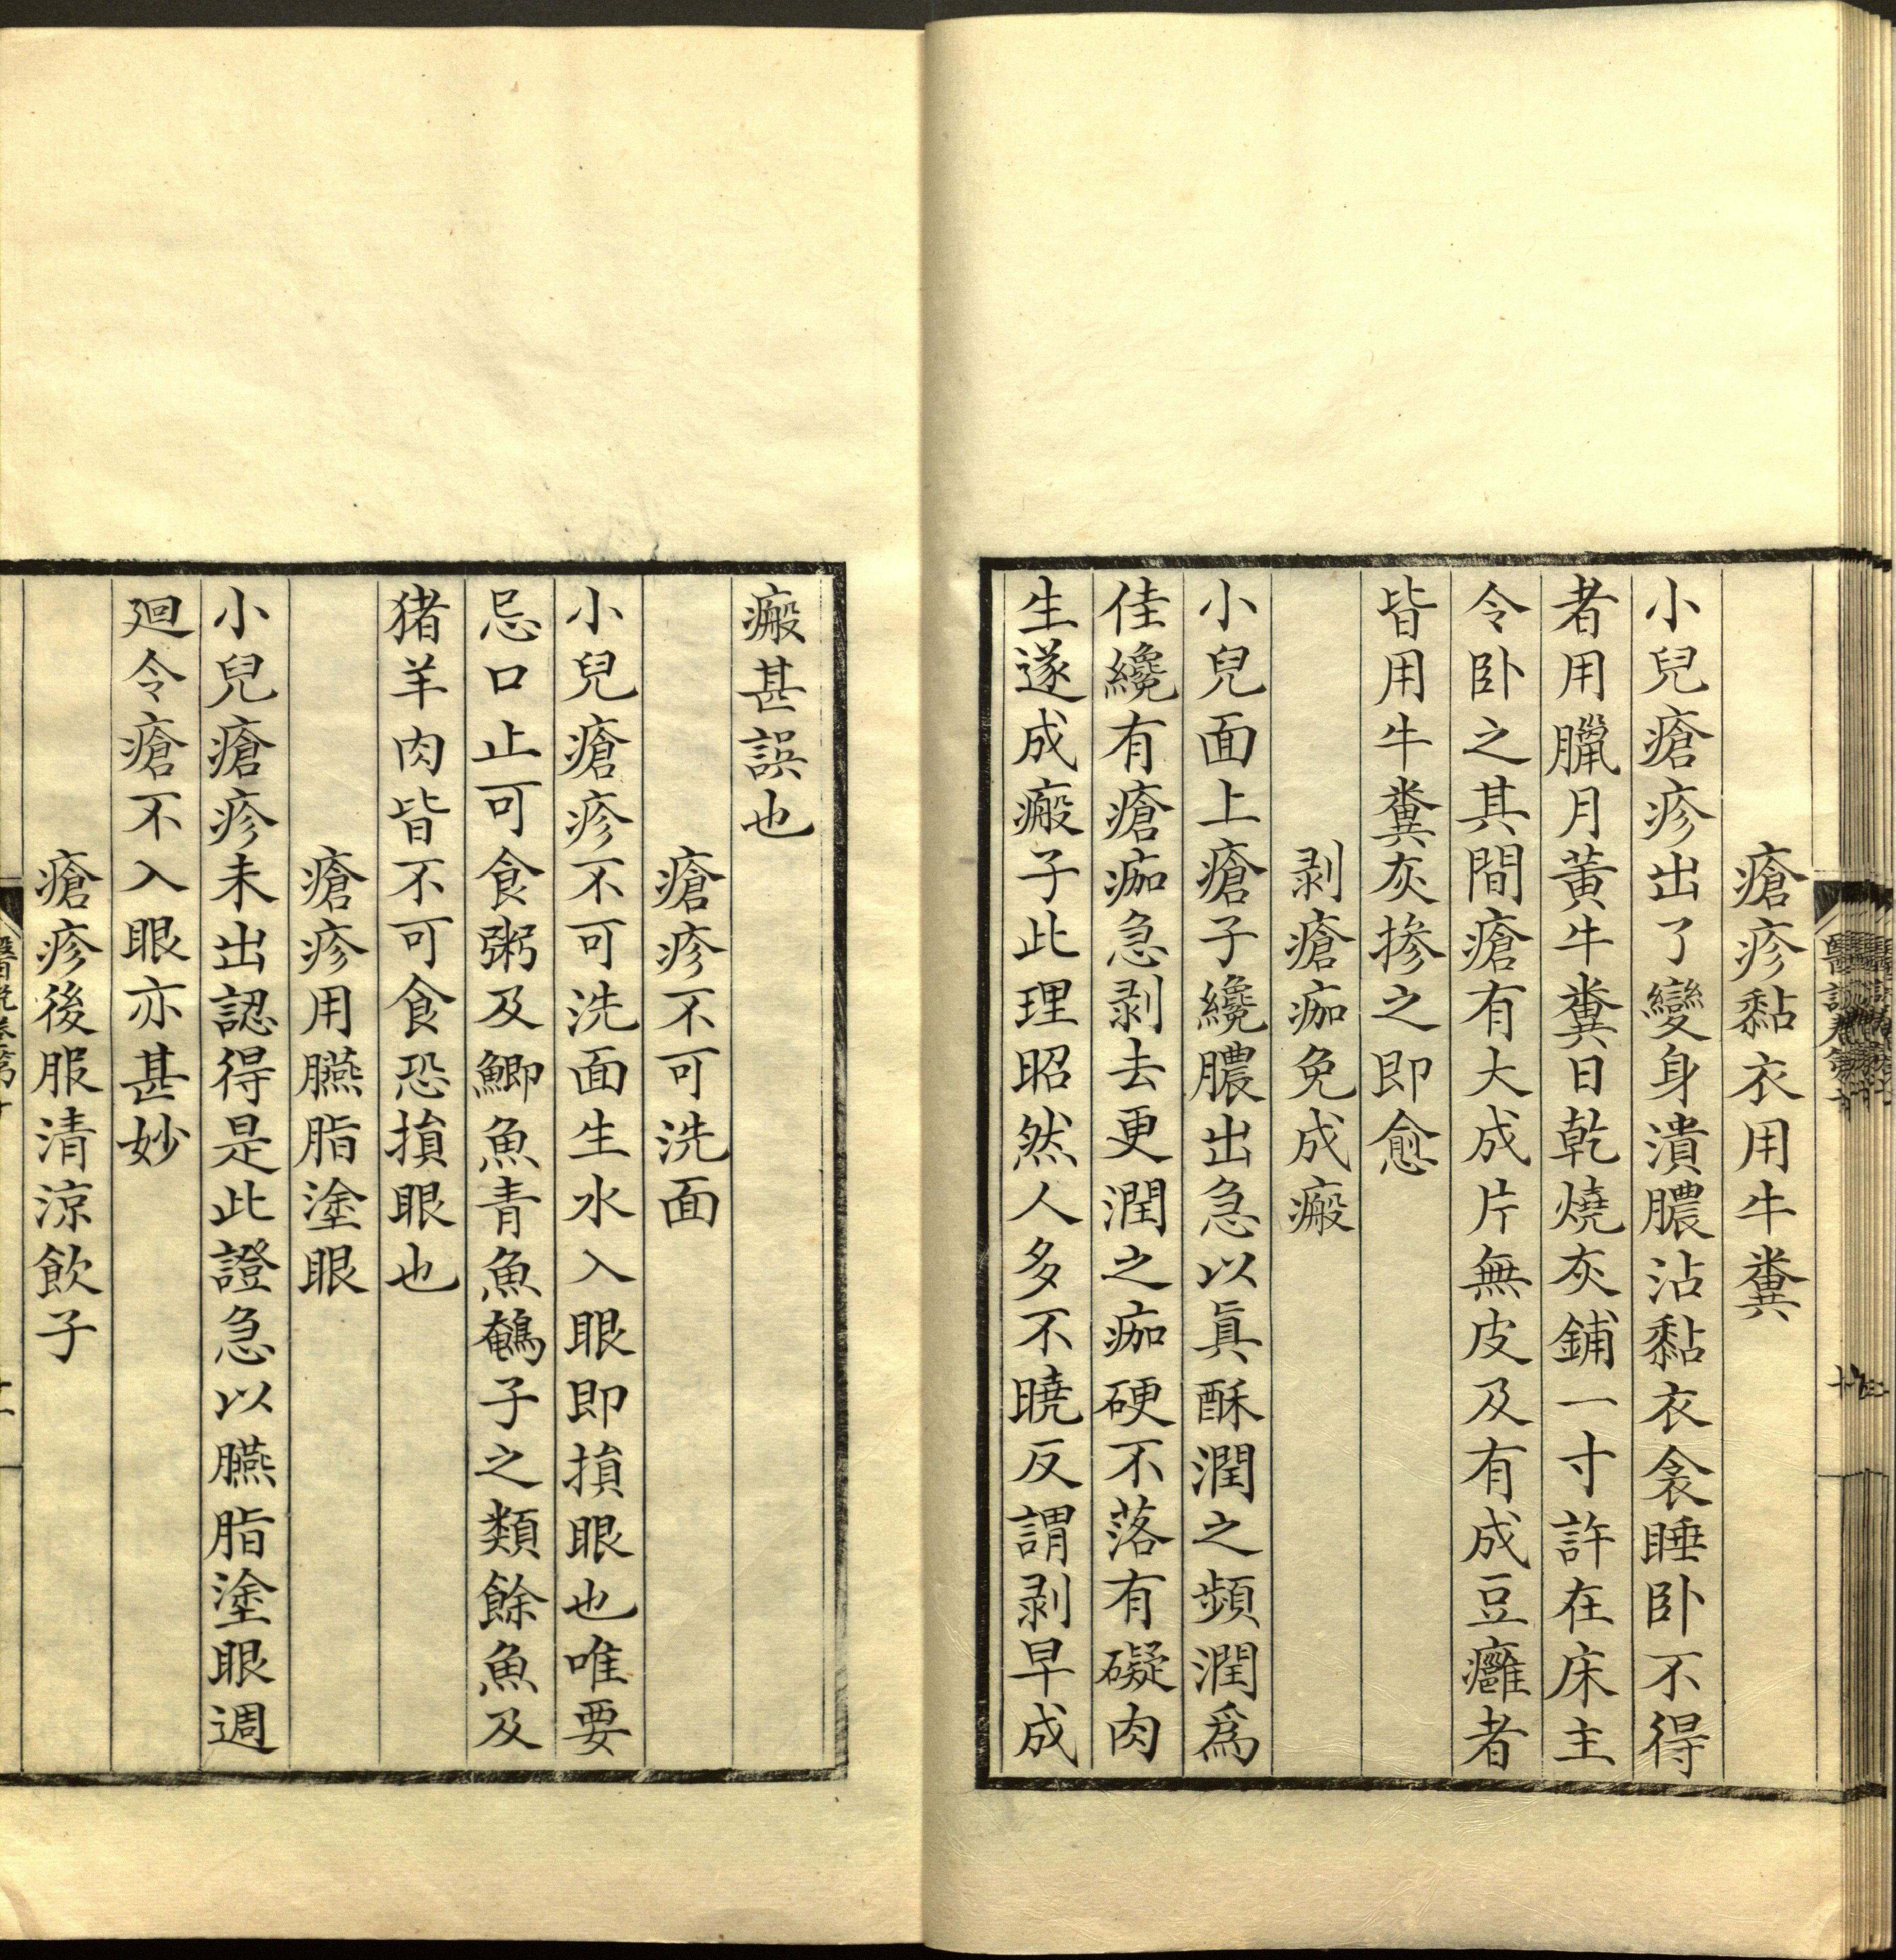 瘡疹黏衣用牛糞
小兒瘡疹出了變身潰膿沾黏衣衾睡卧不得
者用臘月黃牛糞日乾燒灰鋪一寸許在床主
令卧之其間瘡有大成片無皮及有成豆癰者
皆用牛糞灰摻之即愈
剥瘡痂免成瘢
小兒面上瘡子纔膿出急以眞酥潤之頻潤爲
佳纔有瘡痂急剥去更潤之痂硬不落有礙肉
生遂成瘢子此理昭然人多不曉反謂剥早成
瘢甚誤也
瘡疹不可洗面
小兒瘡疹不可洗面生水入眼即損眼也唯要
忌口止可食粥及鯽魚青魚鵪子之類餘魚及
猪羊肉皆不可食恐損眼也
瘡疹用臙脂塗眼
小兒瘡疹未出認得是此證急以臙脂塗眼週
廻令瘡不入眼亦甚妙
瘡疹後服清涼飲子
醫說卷第十